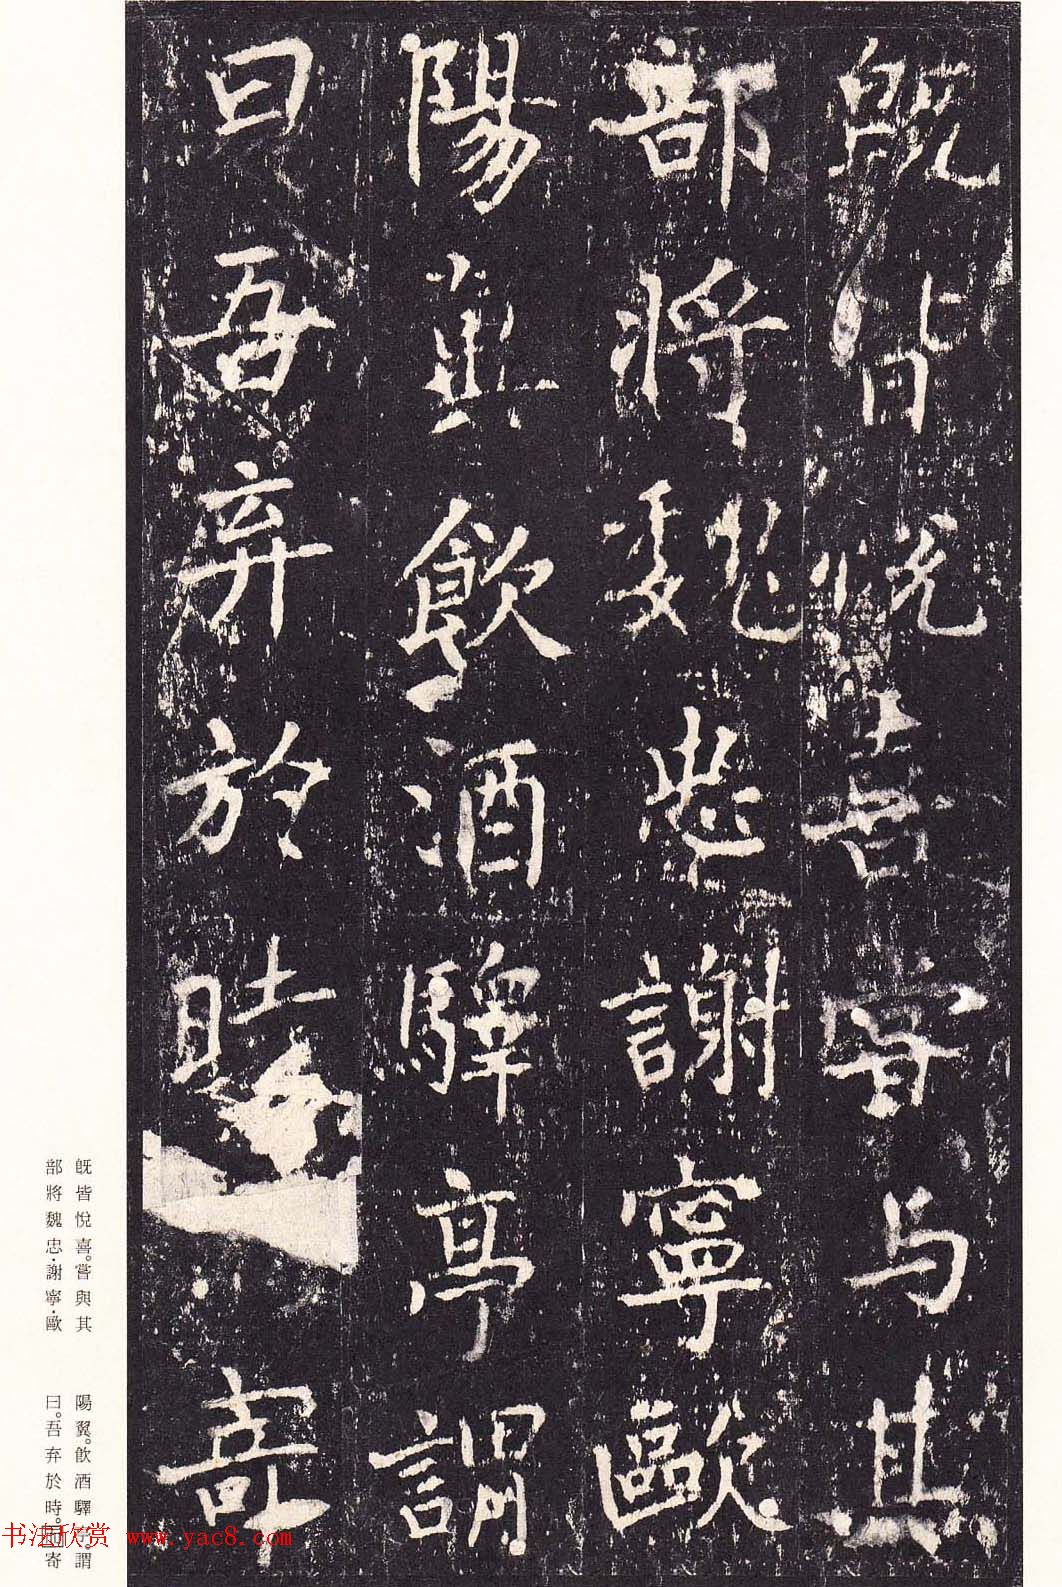 既皆悅喜嘗与其
部將魏忠謝寧歐
陽翼飲酒驛亭謂
曰吾弃於時寄
既皆悅喜。嘗與其
部將魏忠·謝寧·歐
陽翼。飲酒驛 謂
曰。吾弃於時。 寄
书法欣赏 www.yac8.com